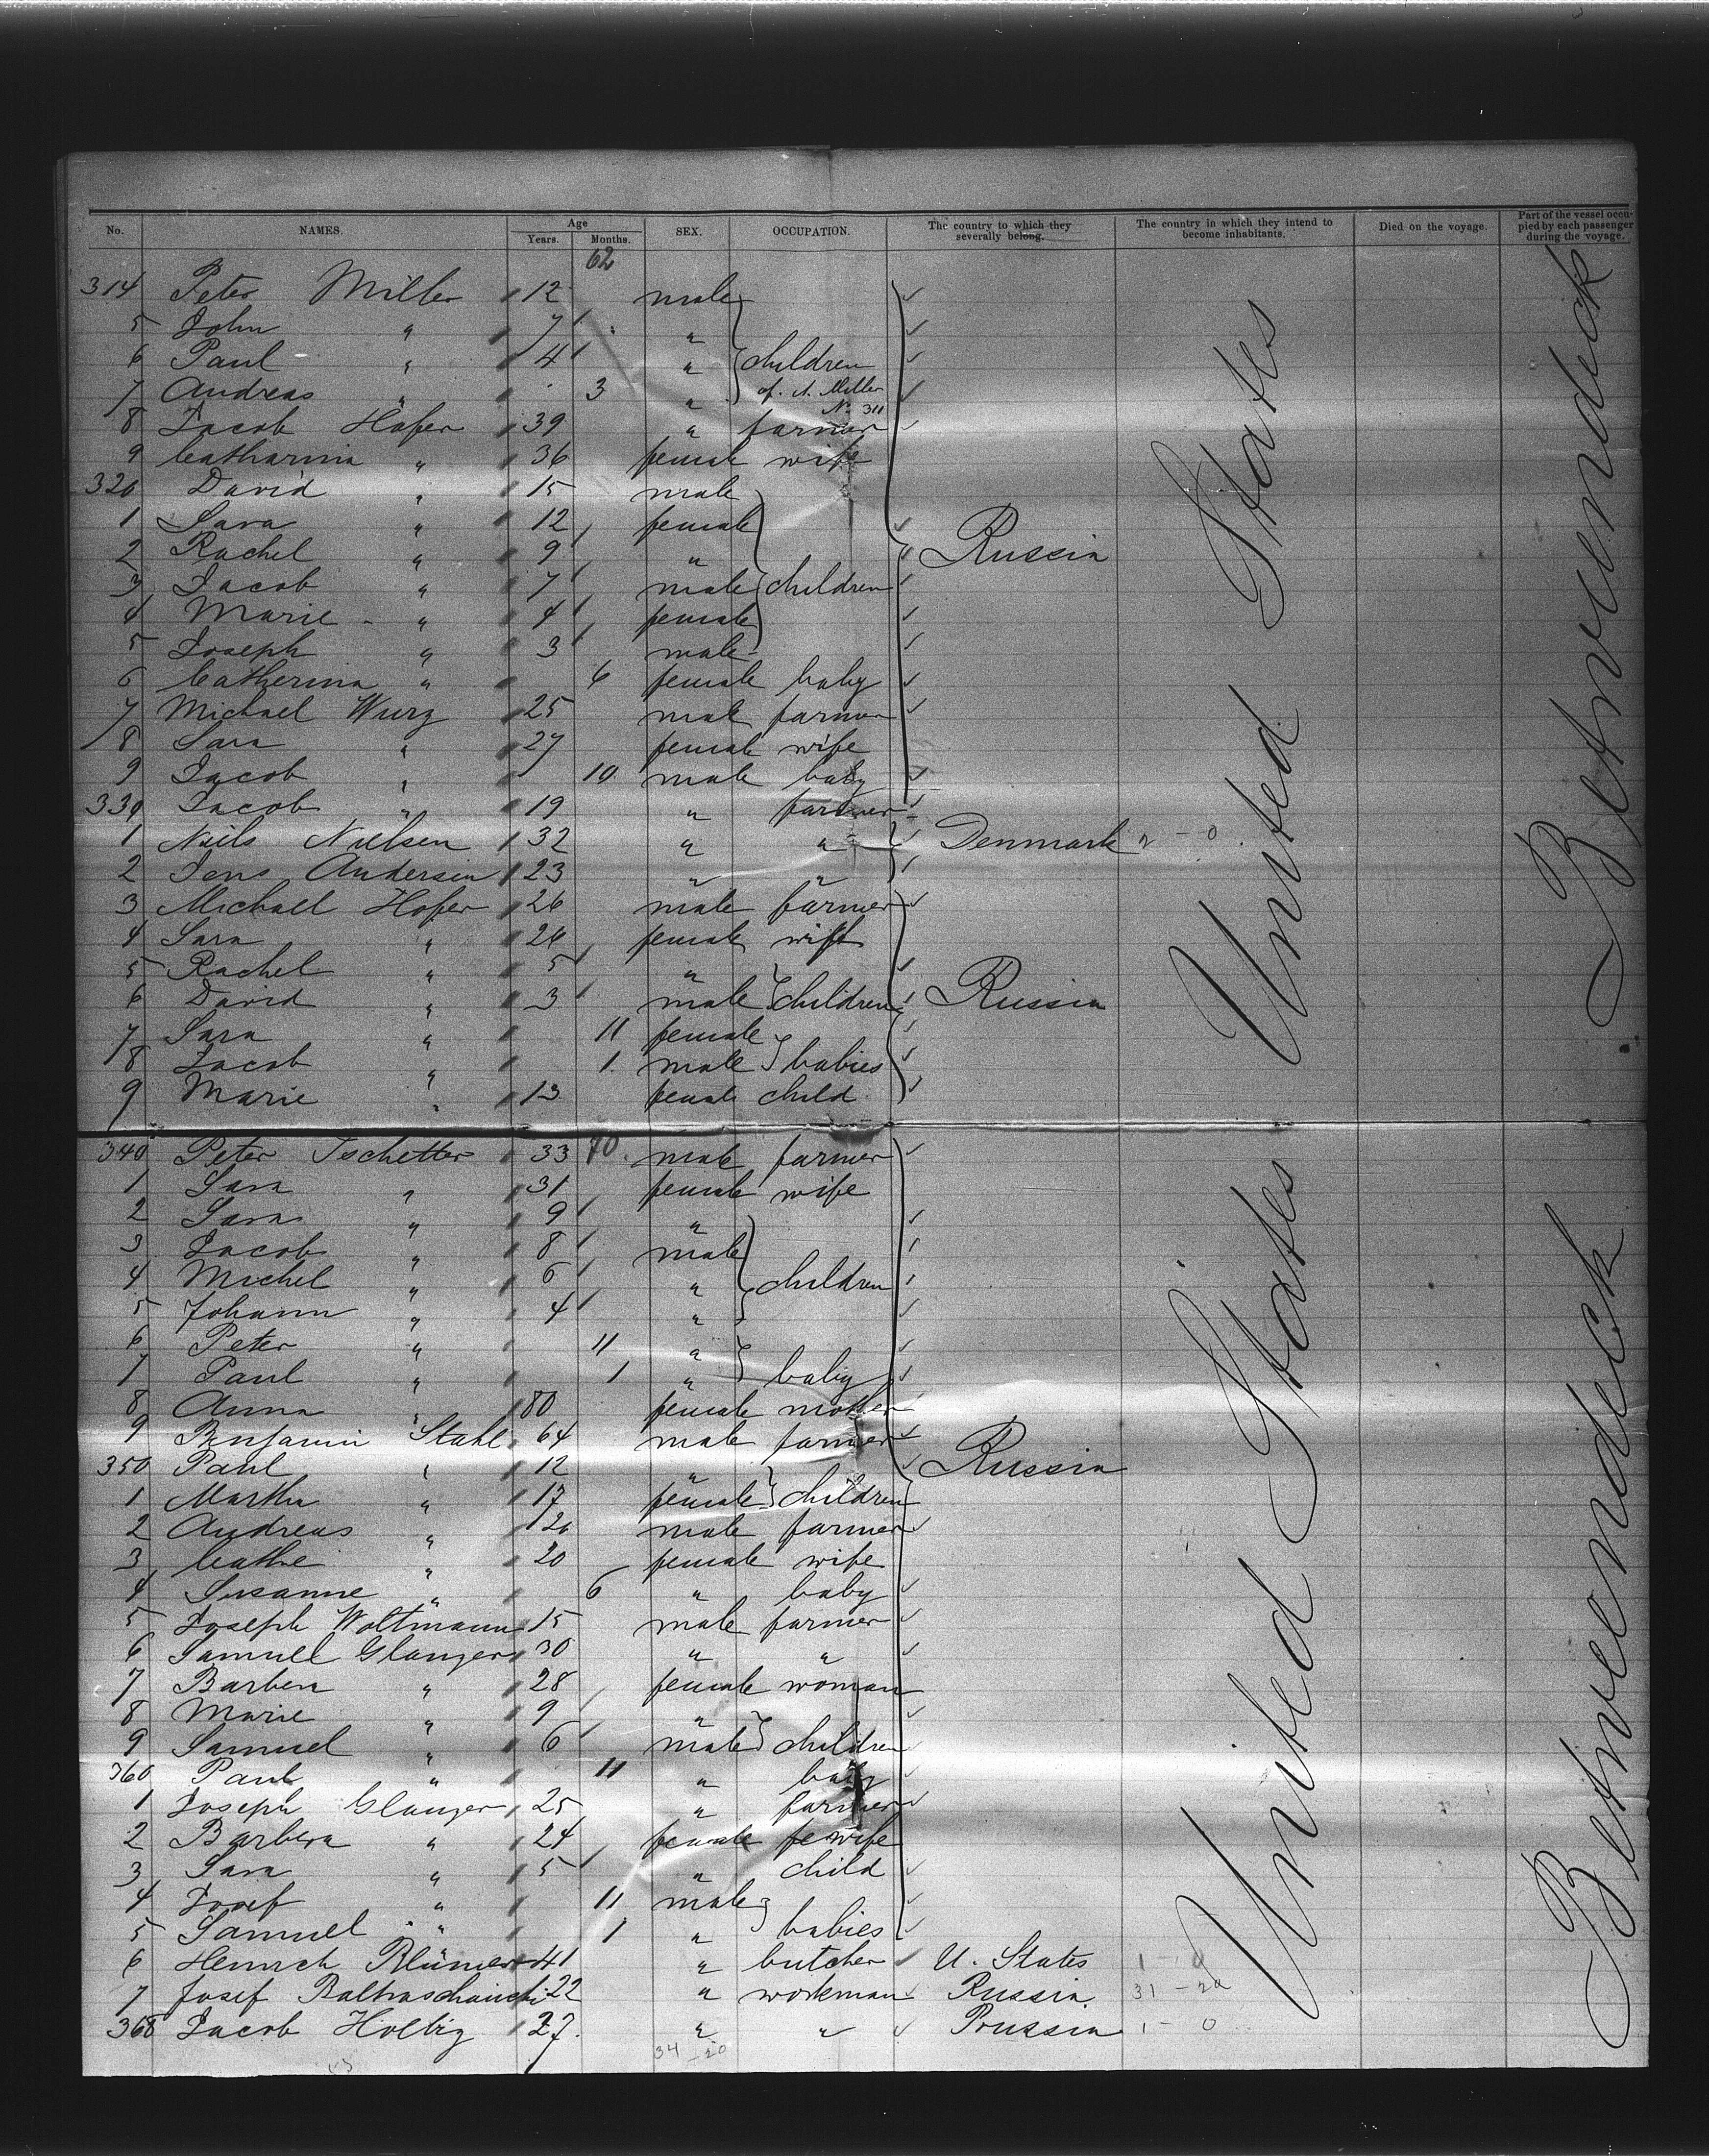 No. NAMES. Age Years. Months. SEX. OCCUPATION. The country to which they severally belong. The country in which they intend to become inhabitants. Died on the voyage. Part of the vessel occupied by each passenger during the voyage.
62
314 Peter Miller 12 male
5 John " 7 "
6 Paul " 4 " children
7 Andreas " 3 " of A. Miller No 311
8 Jacob Hofer 39 " farmer
9 Catharina " 36 female wife
320 David " 15 male
1 Sara " 12 female
2 Rachel " 9 " Russia
3 Jacob " 7 male children
4 Marie " 4 female
5 Joseph " 3 male
6 Catherina " 6 female baby
7 Michael Wurz 25 male farmer
8 Sara " 27 female wife
9 Jacob " 10 male baby
330 Jacob " 19 " farmer
1 Niels Nielsen 32 " " Denmark 2 - 0
2 Jens Andersen 23 " "
3 Michael Hofer 26 male farmer
4 Sara " 26 female wife
5 Rachel " 5 "
6 David " 3 male children Russia
7 Sara " 11 female
8 Jacob " 1 male babies
9 Marie " 13 female child
United States
Betweendeck
340 Peter Tschetter 33 70. male farmer
1 Sara " 31 female wife
2 Sara " 9 "
3 Jacob " 8 male
4 Michel " 6 " children
5 Johann " 4 "
6 Peter " 11 "
7 Paul " 1 " baby
8 Anna " 80 female mother
9 Benjamin Stahl 64 male farmer
350 Paul " 12 " Russia
1 Martha " 17 female children
2 Andreas " 20 male farmer
3 Cathe " 20 female wife
4 Susanne " 6 " baby
5 Joseph Woltmann 15 male farmer
6 Samuel Glanzer 30 " "
7 Barbera " 28 female woman
8 Marie " 9 "
9 Samuel " 6 male children
360 Paul " 11 " baby
1 Joseph Glanzer 25 " farmer
2 Barbera " 24 female fewife
3 Sara " 5 " child
4 Josef " 11 male
5 Samuel " 1 " babies
6 Heinrich Blümer 41 " butcher U. States 1 - 0
7 Josef 22 " workman Russia 31 - 20
368 Jacob Holbig 27. " " Prussia 1 - 0
34 - 20
United States
Betweendeck